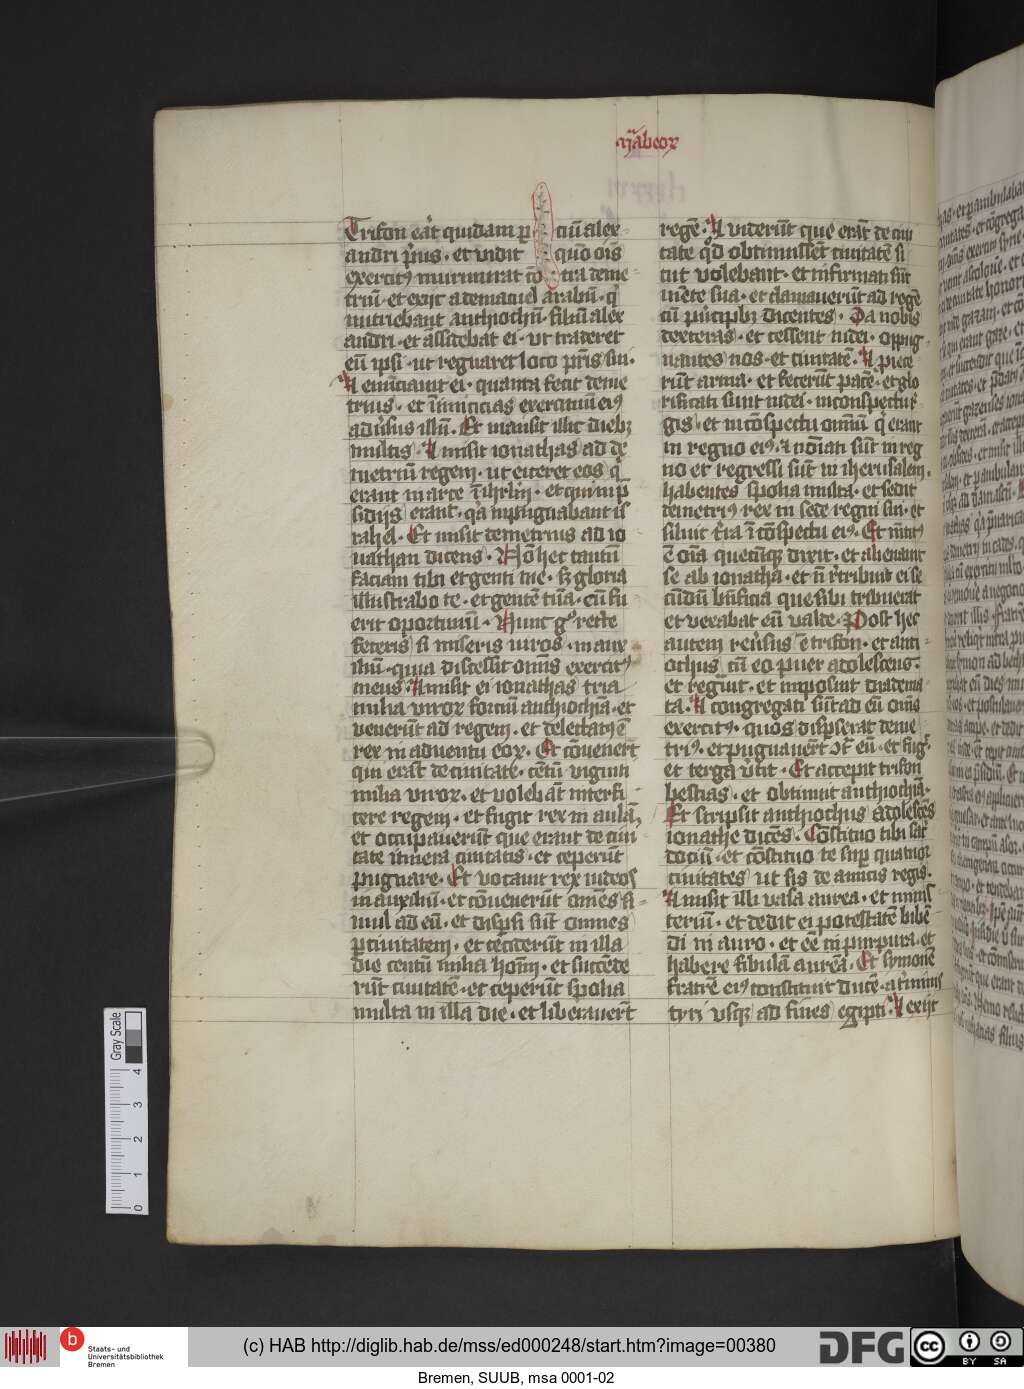 Trifon eat̄ quidam p̲ · ciū alex
andri p̓us · et vidit quō oīs
exercitꝰ murmurat cō · tra deme
triū · et exijt ad emaluel arabū · qͥ
nutriebant anthiochū · filiū alex
andri · et assidebat ei · ut traderet
eū ipsi · ut regnaret loco pr̄is sui ·
Et enūciavit ei · quanta fecit deme
trius · et īimicicias exercituū eiꝰ
aduͥsus illū. Et mansit illic dieb;
multis . Et misit ionathas ad de
metriū regem · ut eiceret eos qͥ
erant in arce ī ihrl̄m · et qui in p̄
sidijs erant · qͥa inpugnabant is
rahel · Et misit demetrius ad io
nathan dicens · Nō hec tantū
faciam tibi et genti tue · sꝫ gloria
illustrabo te · et gentē tuā · cū fu
erit oportunū · Nunc gͦ recte
feceris si miseris uiros · in aux
iliū · quia discessit omīs exercitꝰ
meus. Et misit ei ionathas tria
milia viroꝝ fortiū anthiochiā · et
venerūt ad regem · et delectatꝰ ē
rex in aduentu eoꝝ. Et cōuenerūt
qui erāt de ciuitate · centū viginti
milia viroꝝ · et volebāt interfi
cere regem · et fugit rex in aulā,
et occupauerūt que erant de ciui
tate itinera ciuitatis · et ceperūt
pugnare. Et vocauit rex iudeos
in auxiliū · et cōuenerūt omēs si
mul ad eū · et dispsi sūt omnes
p̲ ciuitatem · et ceciderūt in illa
die centū milia homī · et succēde
rūt ciuitatē · et ceperūt spolia
multa in illa die · et liberauerūt
mabeoꝝ
regē · Et viderūt que erāt de ciui
tate qd̓ obtinuissēt ciuitatē si
cut volebant · et infirmati sūt
mēte sua · et clamauerūt ad regē
cū p̓cipbꝫ dicentes · Da nobis
dexteras · et cessent iudei · oppug
nantes nos · et ciuitatē · Et p̓iece
rūt arma · et fecerūt pacē · et glo
rificati sunt iudei · in conspectu r̄
gis · et in cōspectu omīū qͥ erant
in regno eiꝰ · et noīati sūt in reg
no et regressi sūt in iherusalem ·
habentes spolia multa · et sedit
demetriꝰ rex in sede regni sui · et
siluit t̓ra ī cōspectu eiꝰ. Et mētitꝰ
ē oīa quecūqꝫ dixit · et alienauit
se ab ionatha · et nō r̓tribuit ei se
cūdū bn̄ficia que sibi tribuerat
et vexabat eū valde · Post hec
autem reu̓sus ē trifon · et anti
ochus cū eo puer adolescens ·
et regͣuit · et imposuit diadema
ta. Et congregati sūt ad eū oīs
exercitꝰ · quos dispserat deme
triꝰ · et pugnauerūt ɔtͣ eū · et fugͥt
et terga v̓tit · Et accepit trifon
bestias · et obtinuit anthiochiā ·
Et scripsit anthiochus adolescēs
ionathe dicēs · Cōstituo tibi sac̓
dociū · et cōstituo te sup̲ quatuor
ciuitates ut sis de amicis regis ·
Et misit illi vasa aurea · et minis
teriū · et dedit ei potestatē bibē
di in auro · et eē in purpura · et
habere fibulā aureā · Et symonē
fratrē eiꝰ constituit ducē · a t̓minis
tyri usqꝫ ad fines egipti · Et exijt
Gray Scale
0 1 2 3 4
b Staats- und
Universitätsbibliothek
Bremen
(c) HAB http://diglib.hab.de/mss/ed000248/start.htm?image=00380
DFG
cc BY SA
Bremen, SUUB, msa 0001-02